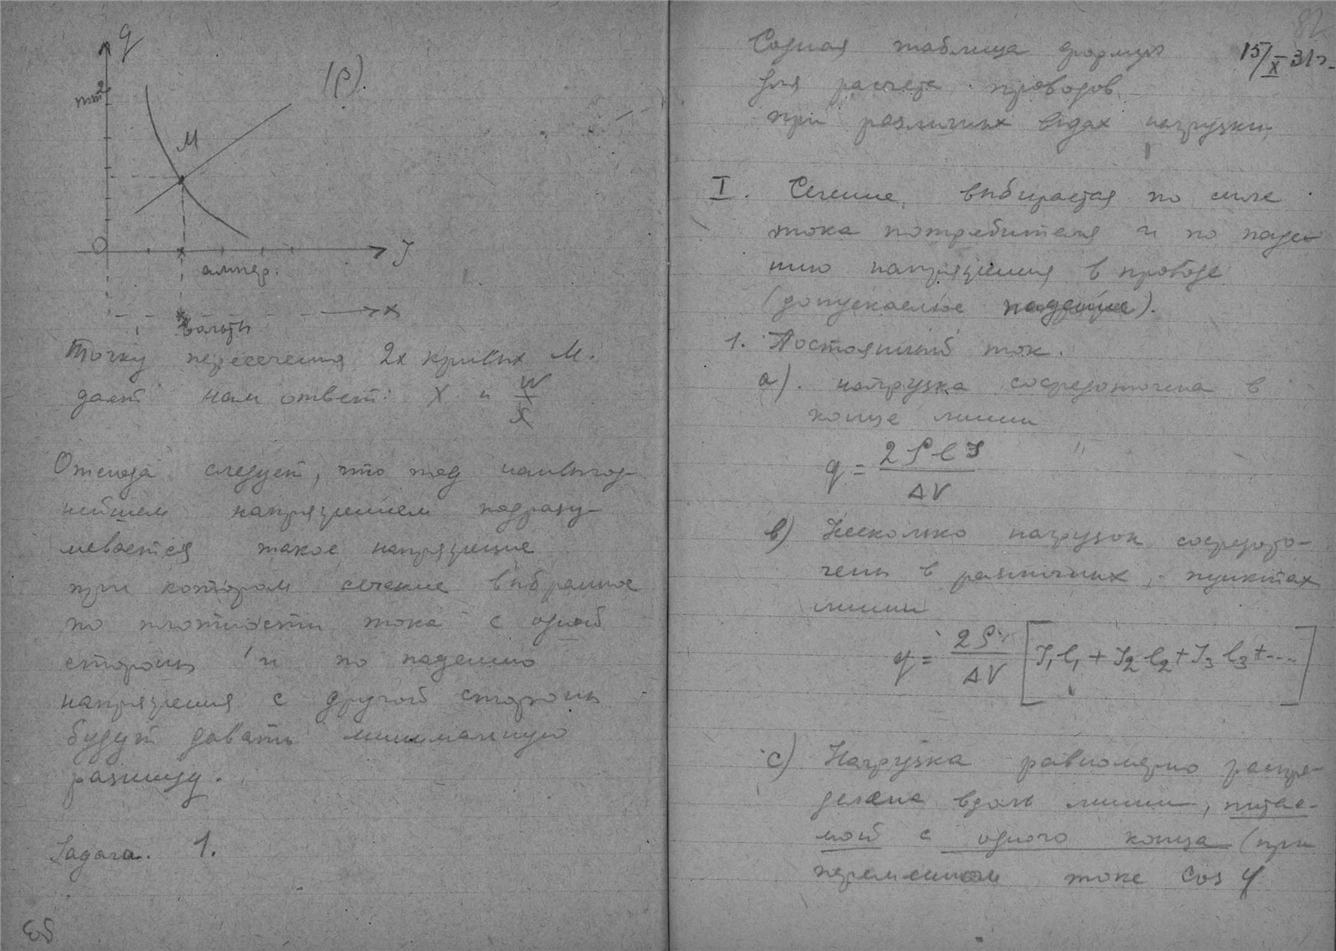 q
mm²
(β).
M
0
J
ампер.
x
вольты
Точку пересечения 2х кривых М.
даёт нам ответ: X и W/X
Отсюда следует, что под наивыгод-
нейшем напряжением подразу-
мевается такое напряжение
при котором сечение выбранное
по плотности тока с одной
стороны и по падению
напряжения с другой стороны
будут давать минимальную
разницу.
Задача. 1.
Сводная таблица формул
15/X 31г.
для расчета проводов
при различных видах нагрузки
I. Сечение, выбирается по силе
тока потребителя и по паде-
нию напряжения в проводе
(допускаемое падение).
1. Постоянный ток.
а). нагрузка сосредоточена в
конце линии
q = 2ρlJ/ΔV
в) Несколько нагрузок сосредото-
чены в различных, пунктах
линии
q = 2ρ/ΔV [J₁l₁ + J₂l₂ + J₃l₃ + ....]
с) Нагрузка равномерно распре-
делена вдоль линии, питае-
мой с одного конца (при
переменном токе cos φ